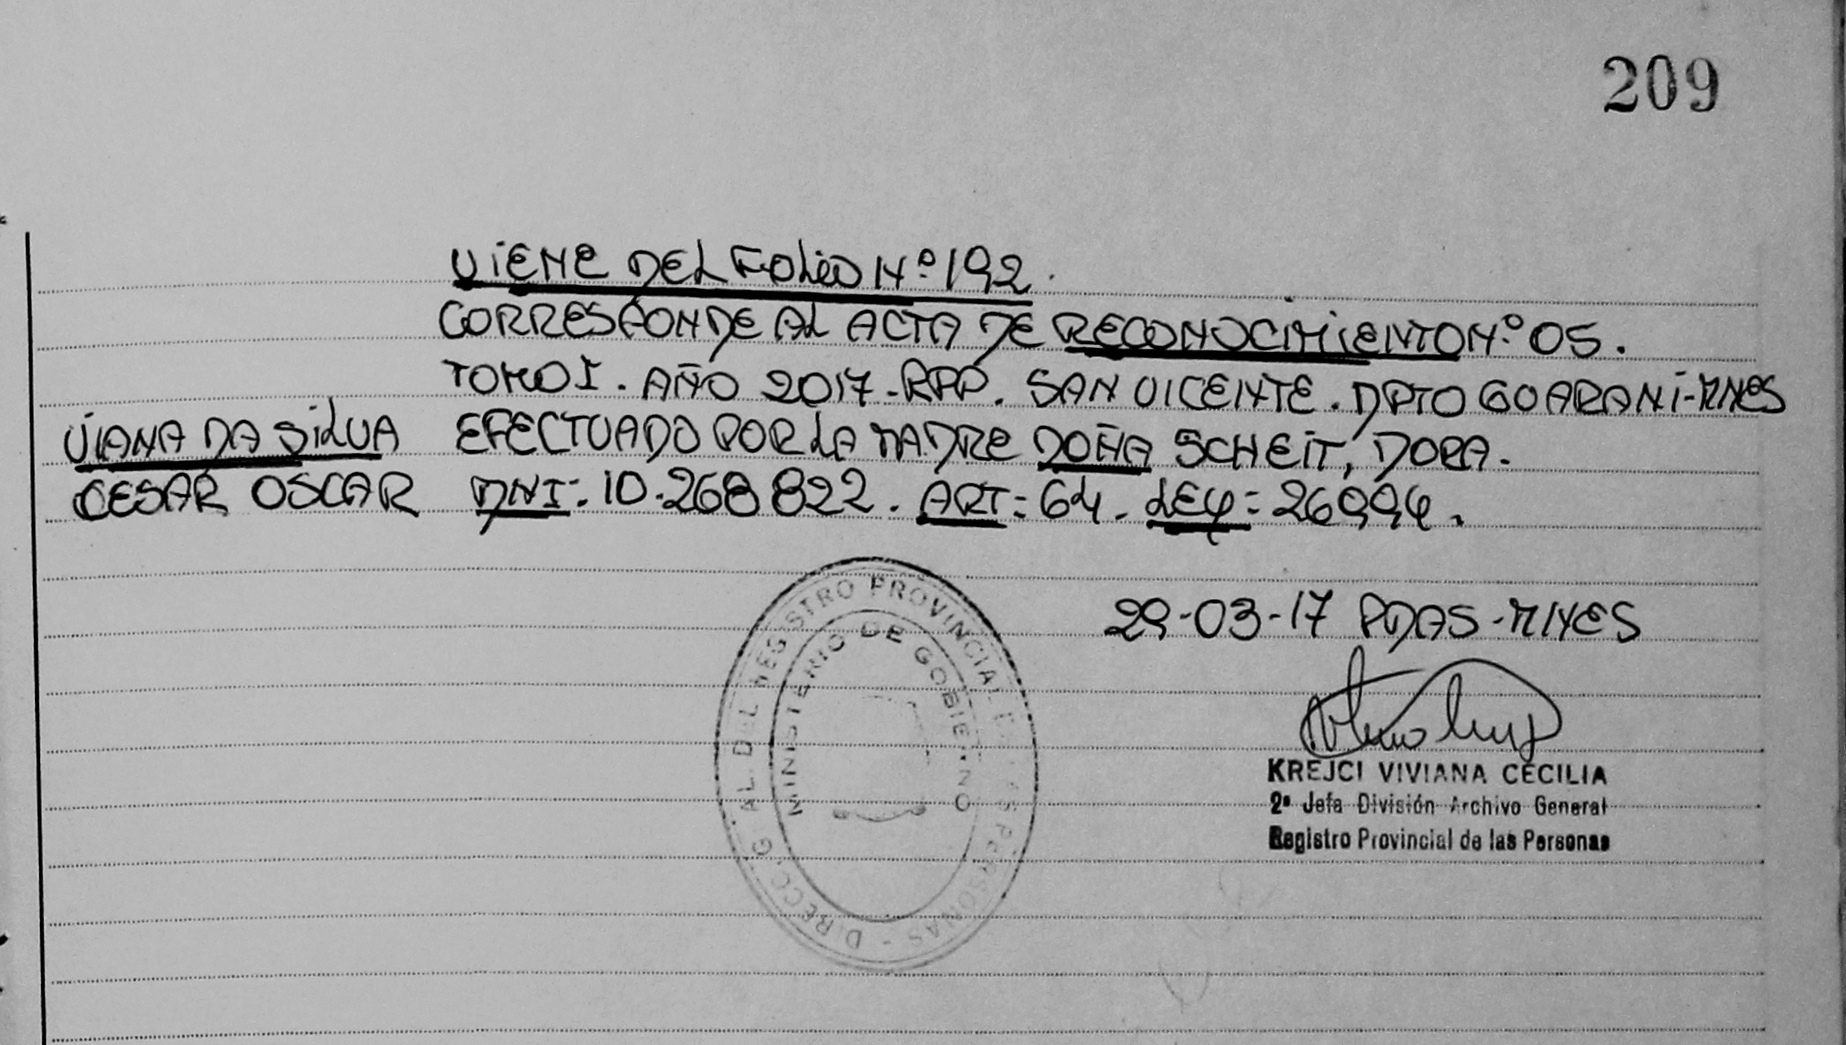 209
VIENE DEL FOLIO Nº 192.
CORRESPONDE AL ACTA DE RECONOCIMIENTO Nº 05.
TOMO I. AÑO 2017-RPP. SAN VICENTE. DPTO GUARANI-MNES
VIANA DA SILVA EFECTUADO POR LA MADRE DOÑA SCHEIT, DORA.
CESAR OSCAR DNI: 10.268822. ART: 64. LEY: 26994.
29-03-17 PDAS-MNES
KREJCI VIVIANA CECILIA
2ª Jefa División Archivo General
Registro Provincial de las Personas
DIRECC. G. AL. DEL REGISTRO PROVINCIAL DE LAS PERSONAS -
MINISTERIO DE GOBIERNO